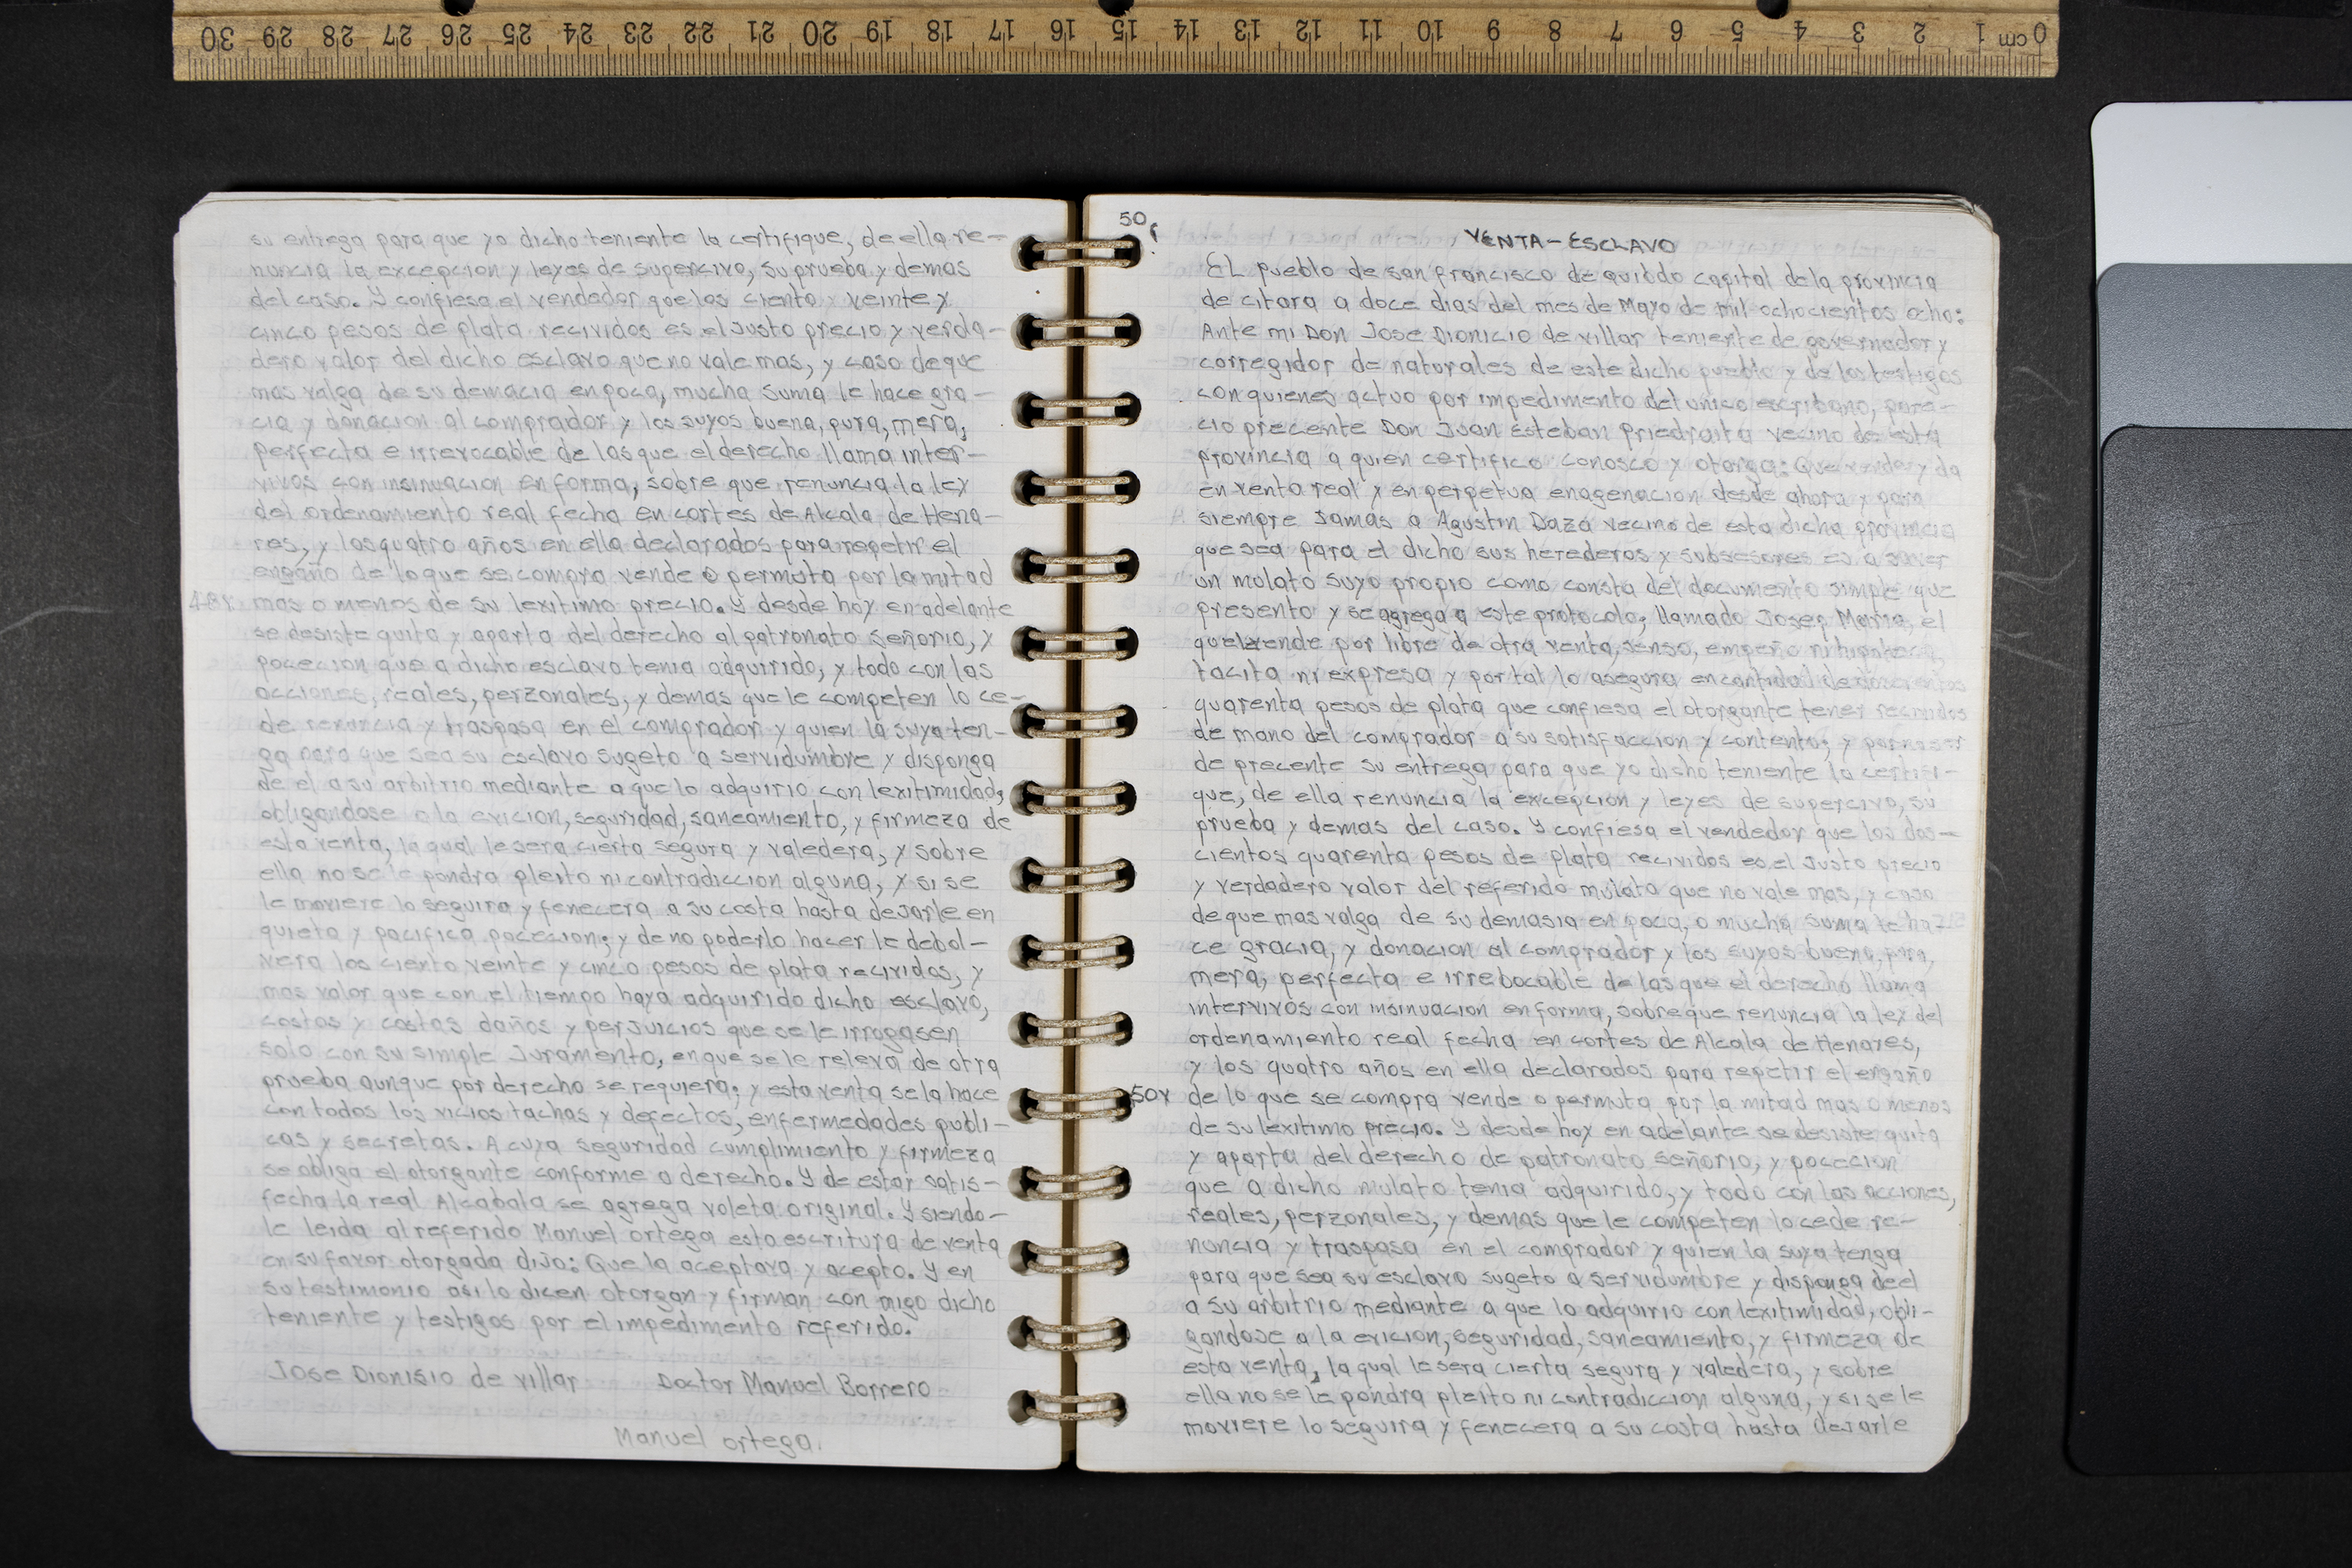 0 cm 1 2 3 4 5 6 7 8 9 10 11 12 13 14 15 16 17 18 19 20 21 22 23 24 25 26 27 28 29 30
su entrega para que yo dicho teniente la certifique, de ella re-
nuncia la excepcion y leyes de supercivo, su prueba y demas
del caso. Y confiesa el vendedor que los ciento veinte y
cinco pesos de plata recividos es el Justo precio y verda-
dero valor del dicho esclavo que no vale mas, y caso de que
mas valga de su demacia en poca, mucha suma le hace gra-
cia y donacion al comprador y los suyos buena, pura, mera,
perfecta e irrevocable de las que el derecho llama inter-
vivos con insinuacion en forma, sobre que renuncia la ley
del ordenamiento real fecha en cortes de Alcala de Hena-
res, y los quatro años en ella declarados para repetir el
engaño de lo que se compra vende o permuta por la mitad
48v mas o menos de su lexitimo precio. Y desde hoy en adelante
se desiste quita y aparta del derecho al patronato señorio, y
pocecion que a dicho esclavo tenia adquirido, y todo con las
acciones, reales, perzonales, y demas que le competen lo ce-
de renuncia y traspasa en el comprador y quien la suya ten-
ga para que sea su esclavo sugeto a servidumbre y disponga
de el a su arbitrio mediante a que lo adquirio con lexitimidad,
obligandose a la evicion, seguridad, saneamiento, y firmeza de
esta venta, la qual le sera cierta segura y valedera, y sobre
ella no se le pondra pleito ni contradiccion alguna, y si se
le moviere lo seguira y fenecera a su costa hasta dejarle en
quieta y pacifica pocecion; y de no poderlo hacer le debol-
vera los ciento veinte y cinco pesos de plata recividos, y
mas valor que con el tiempo haya adquirido dicho esclavo,
costos y costas daños y perjuicios que se le irrogasen
solo con su simple Juramento, en que se le releva de otra
prueba aunque por derecho se requiera; y esta venta se la hace
con todos los vicios tachas y defectos, enfermedades publi-
cas y secretas. A cuya seguridad cumplimiento y firmeza
se obliga el otorgante conforme a derecho. Y de estar satis-
fecha la real Alcabala se agrega voleta original. Y siendo-
le leida al referido Manuel ortega esta escritura de venta
en su favor otorgada dijo: Que la aceptava y acepto. Y en
su testimonio asi lo dicen otorgan y firman con migo dicho
teniente y testigos por el impedimento referido.
Jose Dionisio de villar Doctor Manuel Borrero
Manuel ortega.
50r
VENTA-ESCLAVO
EL pueblo de san francisco de quibdo capital de la provincia
de citara a doce dias del mes de Mayo de mil ochocientos ocho:
Ante mi Don Jose Dionicio de villar teniente de governador y
corregidor de naturales de este dicho pueblo y de los testigos
con quienes actuo por impedimento del unico escribano, pare-
cio precente Don Juan Esteban Priedraita vecino de esta
provincia a quien certifico conosco y otorga: Que vende y da
en venta real y en perpetua enagenacion desde ahora y para
siempre Jamas a Agustin Daza vecino de esta dicha provincia
que sea para el dicho sus herederos y subsesores es a saver
un mulato suyo propio como consta del documento simple que
presento y se agrega a este protocolo; llamado Josep Maria, el
que le vende por libre de otra venta, senso, empeño ni hipoteca,
tacita ni expresa y por tal lo asegura en cantidad de doscientos
quarenta pesos de plata que confiesa el otorgante tener recividos
de mano del comprador a su satisfaccion y contento; y por no ser
de precente su entrega para que yo dicho teniente la certifi-
que, de ella renuncia la excepcion y leyes de supercivo, su
prueba y demas del caso. Y confiesa el vendedor que los dos-
cientos quarenta pesos de plata recividos es el Justo precio
y verdadero valor del referido mulato que no vale mas, y caso
de que mas valga de su demasia en poca, o mucha suma le ha-
ce gracia, y donacion al comprador y los suyos buena, pura,
mera, perfecta e irrebocable de las que el derecho llama
intervivos con insinuacion en forma, sobre que renuncia la ley del
ordenamiento real fecha en cortes de Alcala de Henares,
y los quatro años en ella declarados para repetir el engaño
50v de lo que se compra vende o permuta por la mitad mas o menos
de su lexitimo precio. Y desde hoy en adelante se desiste quita
y aparta del derecho de patronato señorio, y pocecion
que a dicho mulato tenia adquirido, y todo con las acciones,
reales, perzonales, y demas que le competen lo cede re-
nuncia y traspasa en el comprador y quien la suya tenga
para que sea su esclavo sugeto a servidumbre y disponga de el
a su arbitrio mediante a que lo adquirio con lexitimidad, obli-
gandose a la evicion, seguridad, saneamiento, y firmeza de
esta venta, la qual le sera cierta segura y valedera, y sobre
ella no se le pondra pleito ni contradiccion alguna, y si se le
moviere lo seguira y fenecera a su costa hasta dejarle